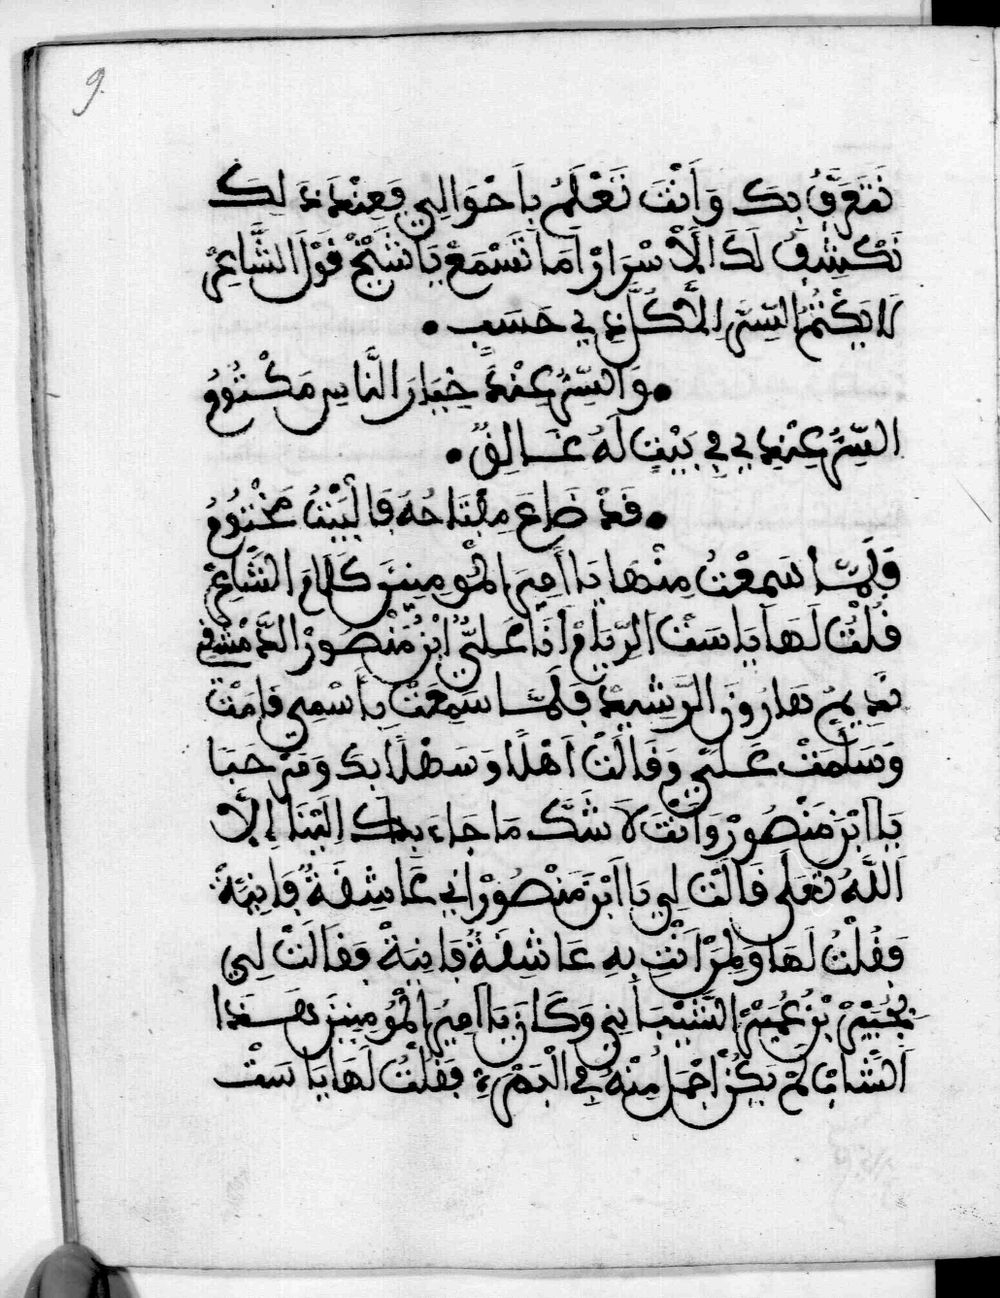 9
نَتَعَرَّفُ بِكَ وَأَنْتَ تَعْلَمُ بِأَحْوَالِي فَعِنْدَ ذَلِكَ
نَكْشِفُ لَكَ الْأَسْرَارْ أَمَا تَسْمَعْ يَا شَيْخْ قَوْلَ الشَّاعِرْ
لَا يَكْتُمُ السِّرَّ إِلَّا كُلُّ ذِي حَسَبٍ •
• وَالسِّرُّ عِنْدَ خِيَارِ النَّاسِ مَكْتُومُ
السِّرُّ عِنْدِي فِي بَيْتٍ لَهُ غَالِقٌ •
• قَدْ ضَاعَ مِفْتَاحُهُ فَالْبَيْتُ مَخْتُومُ
فَلَمَّا سَمِعْتُ مِنْهَا يَا أَمِيرَ الْمُومِنِينَ كَلَامَ الشَّاعِرْ
قُلْتُ لَهَا يَا سَتْ الرِّيَامْ أَنَا عَلِيُّ ابْنُ مَنْصُورْ الدَّمْشْقِي
نَدِيمُ هَارُونَ الرَّشِيدْ فَلَمَّا سَمِعَتْ بِأَسْمِي قَامَتْ
وَسَلَّمَتْ عَلَيَّ وَقَالَتْ أَهْلًا وَسَهْلًا بِكَ وَمَرْحَبَا
يَا ابْنَ مَنْصُورْ وَأَنْتَ لَا شَكَّ مَا جَاءَ بِكَ إِلَيْنَا إِلَّا
اللَّهُ تَعَلَى قَالَتْ لِي يَا ابْنَ مَنْصُورْ إِنِّي عَاشِقَةٌ فَانِيَةٌ
فَقُلْتُ لَهَا وَلِمَنْ أَنْتِ بِهِ عَاشِقَةٌ فَانِيَةْ فَقَالَتْ لِي
بْجُبَيْرْ بْنُ عُمَيْرْ الشَّيْبَانِي وَكَانَ يَا أَمِيرَ الْمُومِنِينَ هَذَا
الشَّابْ لَمْ يَكُنْ أَجْمَلُ مِنْهُ فِي الْبَصْرَة فَقُلْتُ لَهَا يَا سَتْ